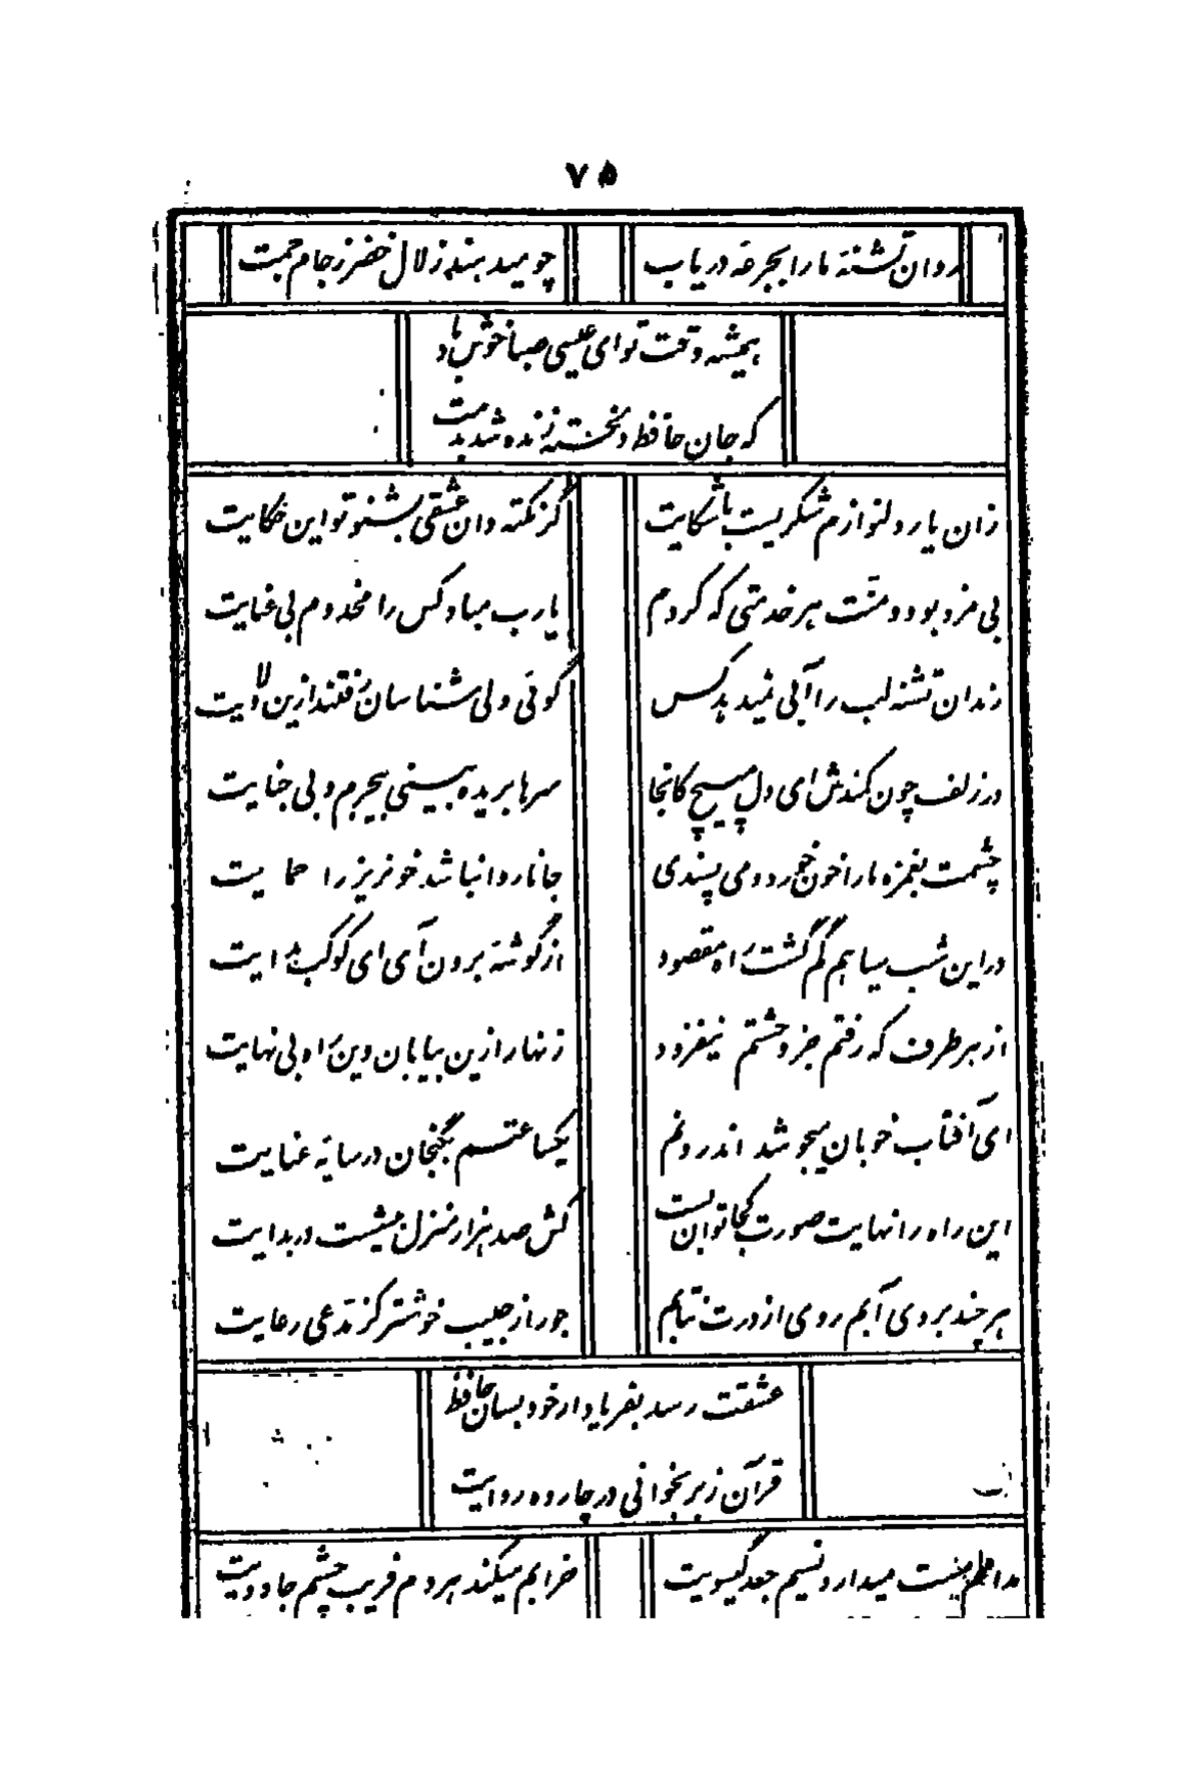 ۷۵
روان تشنهٔ ما را بجرعهٔ دریاب    چو میدهند زلال خضر ز جام جمت
همیشه وقت تو ای عیسی صبا خوش باد
که جان حافظ دلخسته زنده شد بدمت
زان یار دلنوازم شکریست با شکایت    گر نکته دان عشقی بشنو تو این حکایت
بی مزد بود و منّت هر خدمتی که کردم    یارب مباد کس را مخدوم بی عنایت
رندان تشنه لب را آبی نمیدهد کس    گوئی ولی شناسان رفتند ازین ولایت
در زلف چون کمندش ای دل مپیچ کانجا    سرها بریده بینی بیجرم و بی جنایت
چشمت بغمزه ما را خون خورد و می پسندی    جانا روا نباشد خونریز را حمایت
در این شب سیاهم گم گشت راه مقصود    از گوشهٔ برون آی ای کوکب هدایت
از هر طرف که رفتم جز وحشتم نیفزود    زنهار ازین بیابان وین راه بی نهایت
ای آفتاب خوبان میجوشد اندرونم    یکساعتم بگنجان در سایهٔ عنایت
این راه را نهایت صورت کجا توان بست    کش صد هزار منزل بیشست در بدایت
هر چند بردی آبم روی از درت نتابم    جور از حبیب خوشتر کز مدّعی رعایت
عشقت رسد بفریاد ار خود بسان حافظ
قرآن ز بر بخوانی در چارده روایت
مدامم مست میدارد نسیم جعد گیسویت    خرابم میکند هر دم فریب چشم جادویت